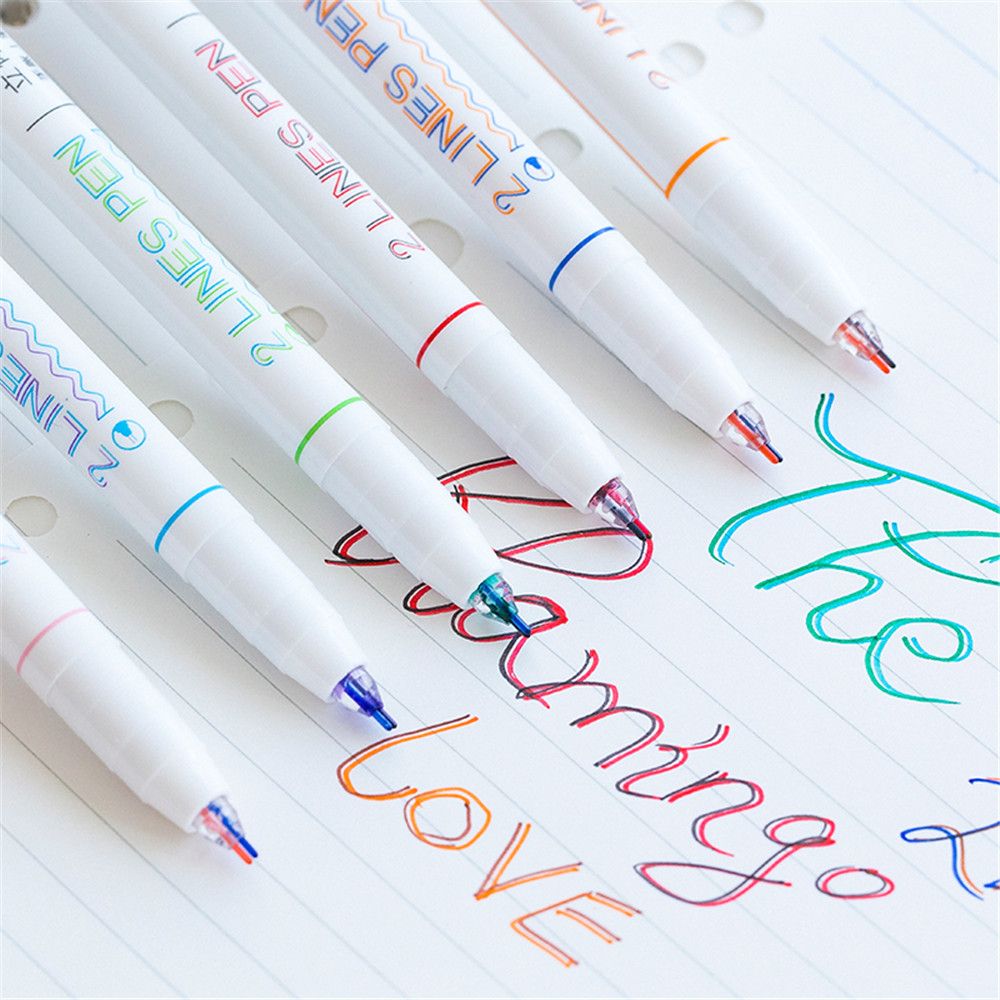 2 LINES
2 LINES PEN
2 LINES PEN
2 LINES PEN
2 LI
The
LOVE